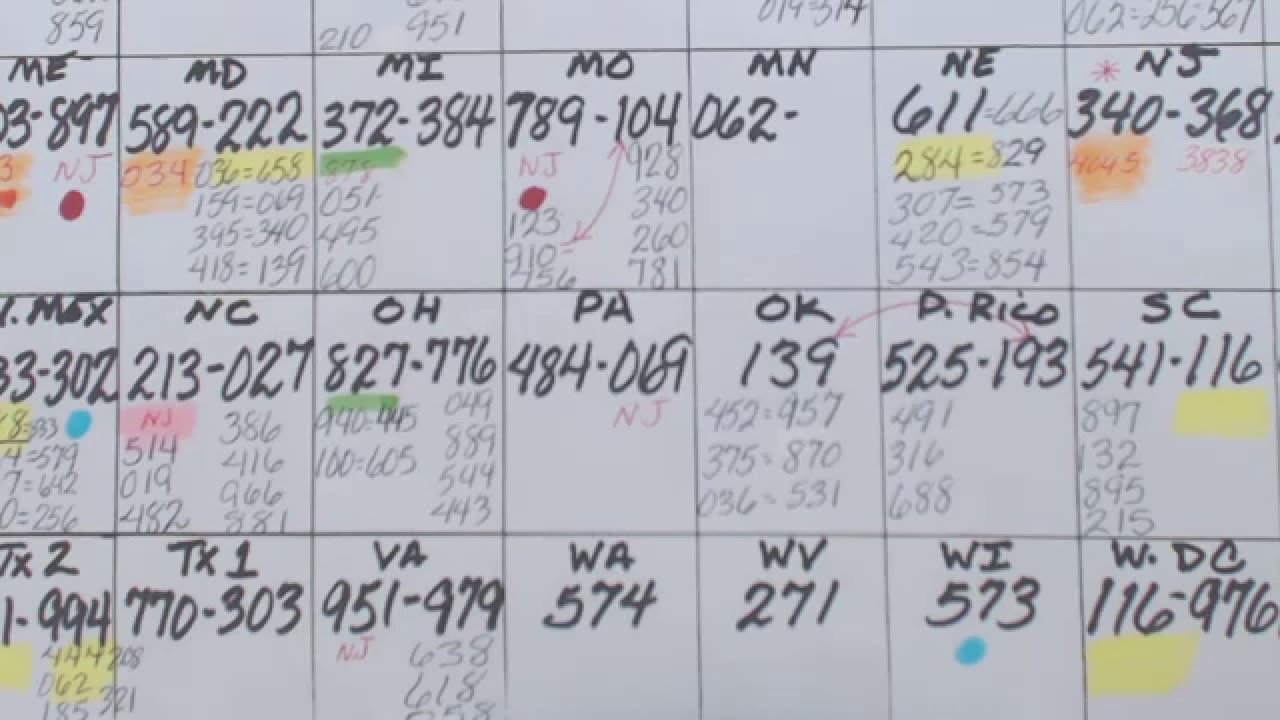 859
210 951
019=314
062=256=567
ME MD MI MO MN NE * NJ
3-897 589-222 372-384 789-104 062- 611=666 340-368
3 NJ 034 036=658 NJ 928 284=829 4645 3838
159=069 051 340 307=573
395=340 495 123 260 420=579
418=139 600 910= 781 543=854
756
. MEX NC OH PA OK P. Rico SC
33-302 213-027 827-776 484-069 139 525-193 541-116
8=333 NJ 386 990=445 049 NJ 452=957 491 897
4=579 514 416 100=605 889 375=870 316 132
7=642 019 966 544 036=531 688 895
0=256 482 881 443 215
TX 2 TX 1 VA WA WV WI W. DC
1-994 770-303 951-979 574 271 573 116-976
444 208 NJ 638
062 618
185 321 058